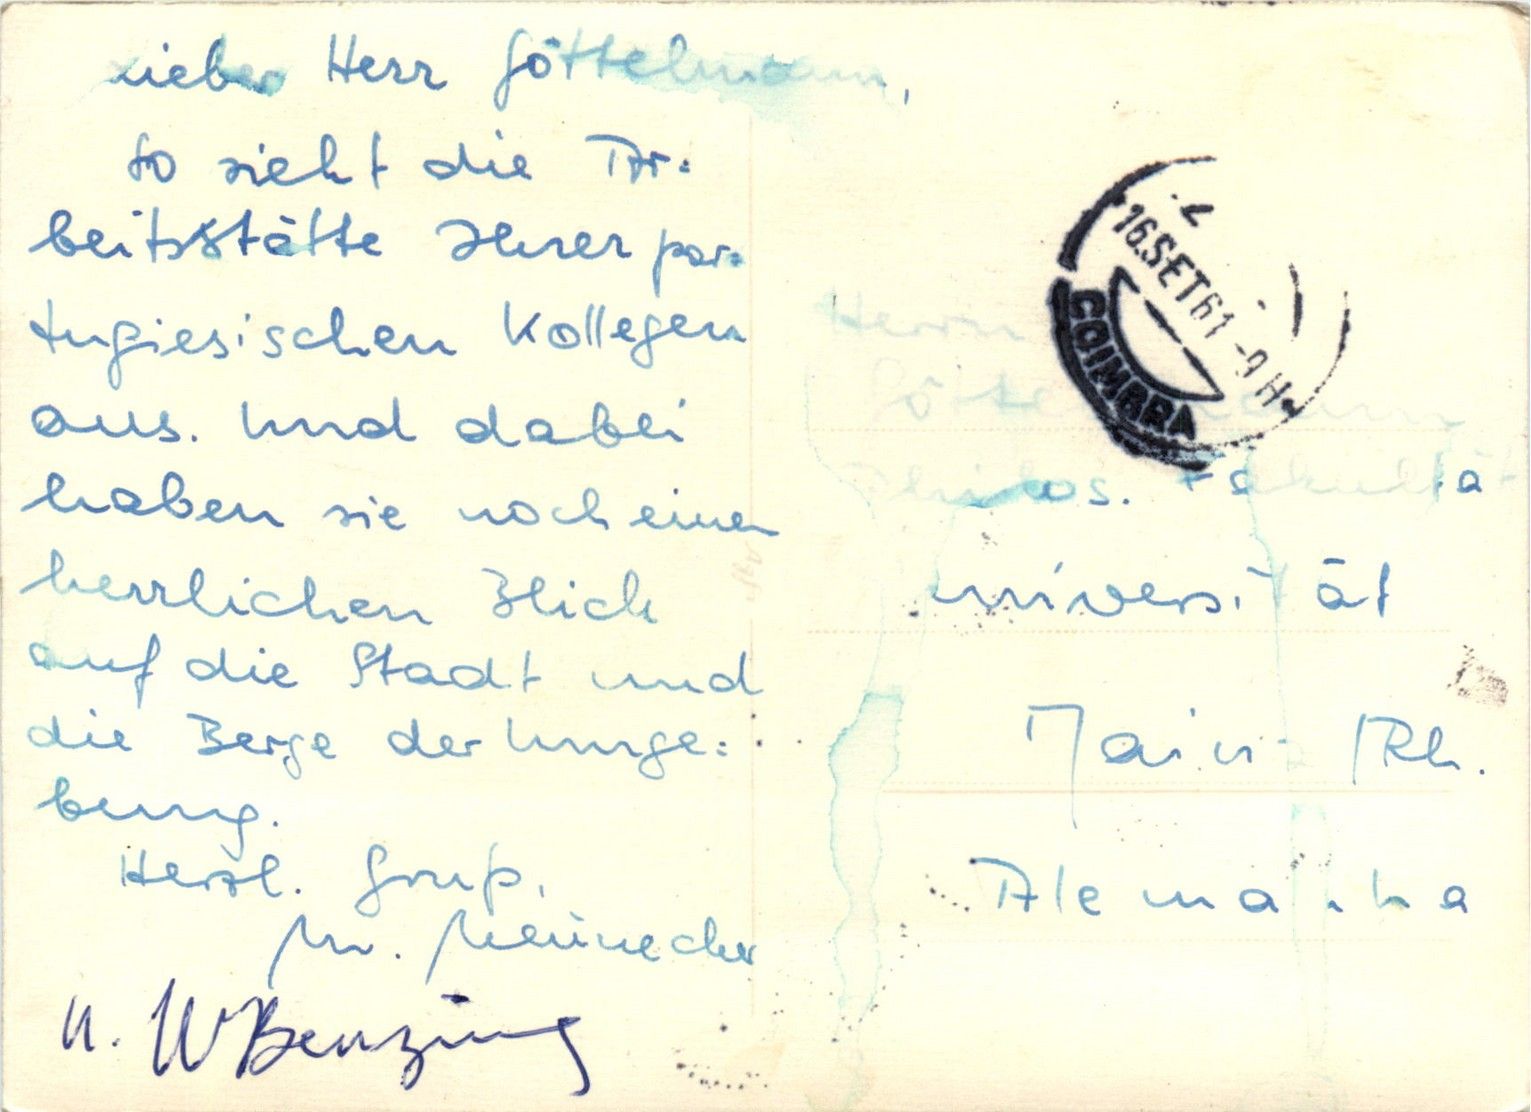 Lieber Herr Göttelmann,
so sieht die Ar=
beitsstätte Ihrer por=
tugiesischen Kollegen
aus. Und dabei
haben sie noch einen
herrlichen Blick
auf die Stadt und
die Berge der Umge=
bung.
Herzl. Gruß,
W. Benzing
16.SET61-9H
COIMBRA
Herrn
Göttelmann
Philos. Fakultät
Universität
Mainz /Rh.
Alemanha